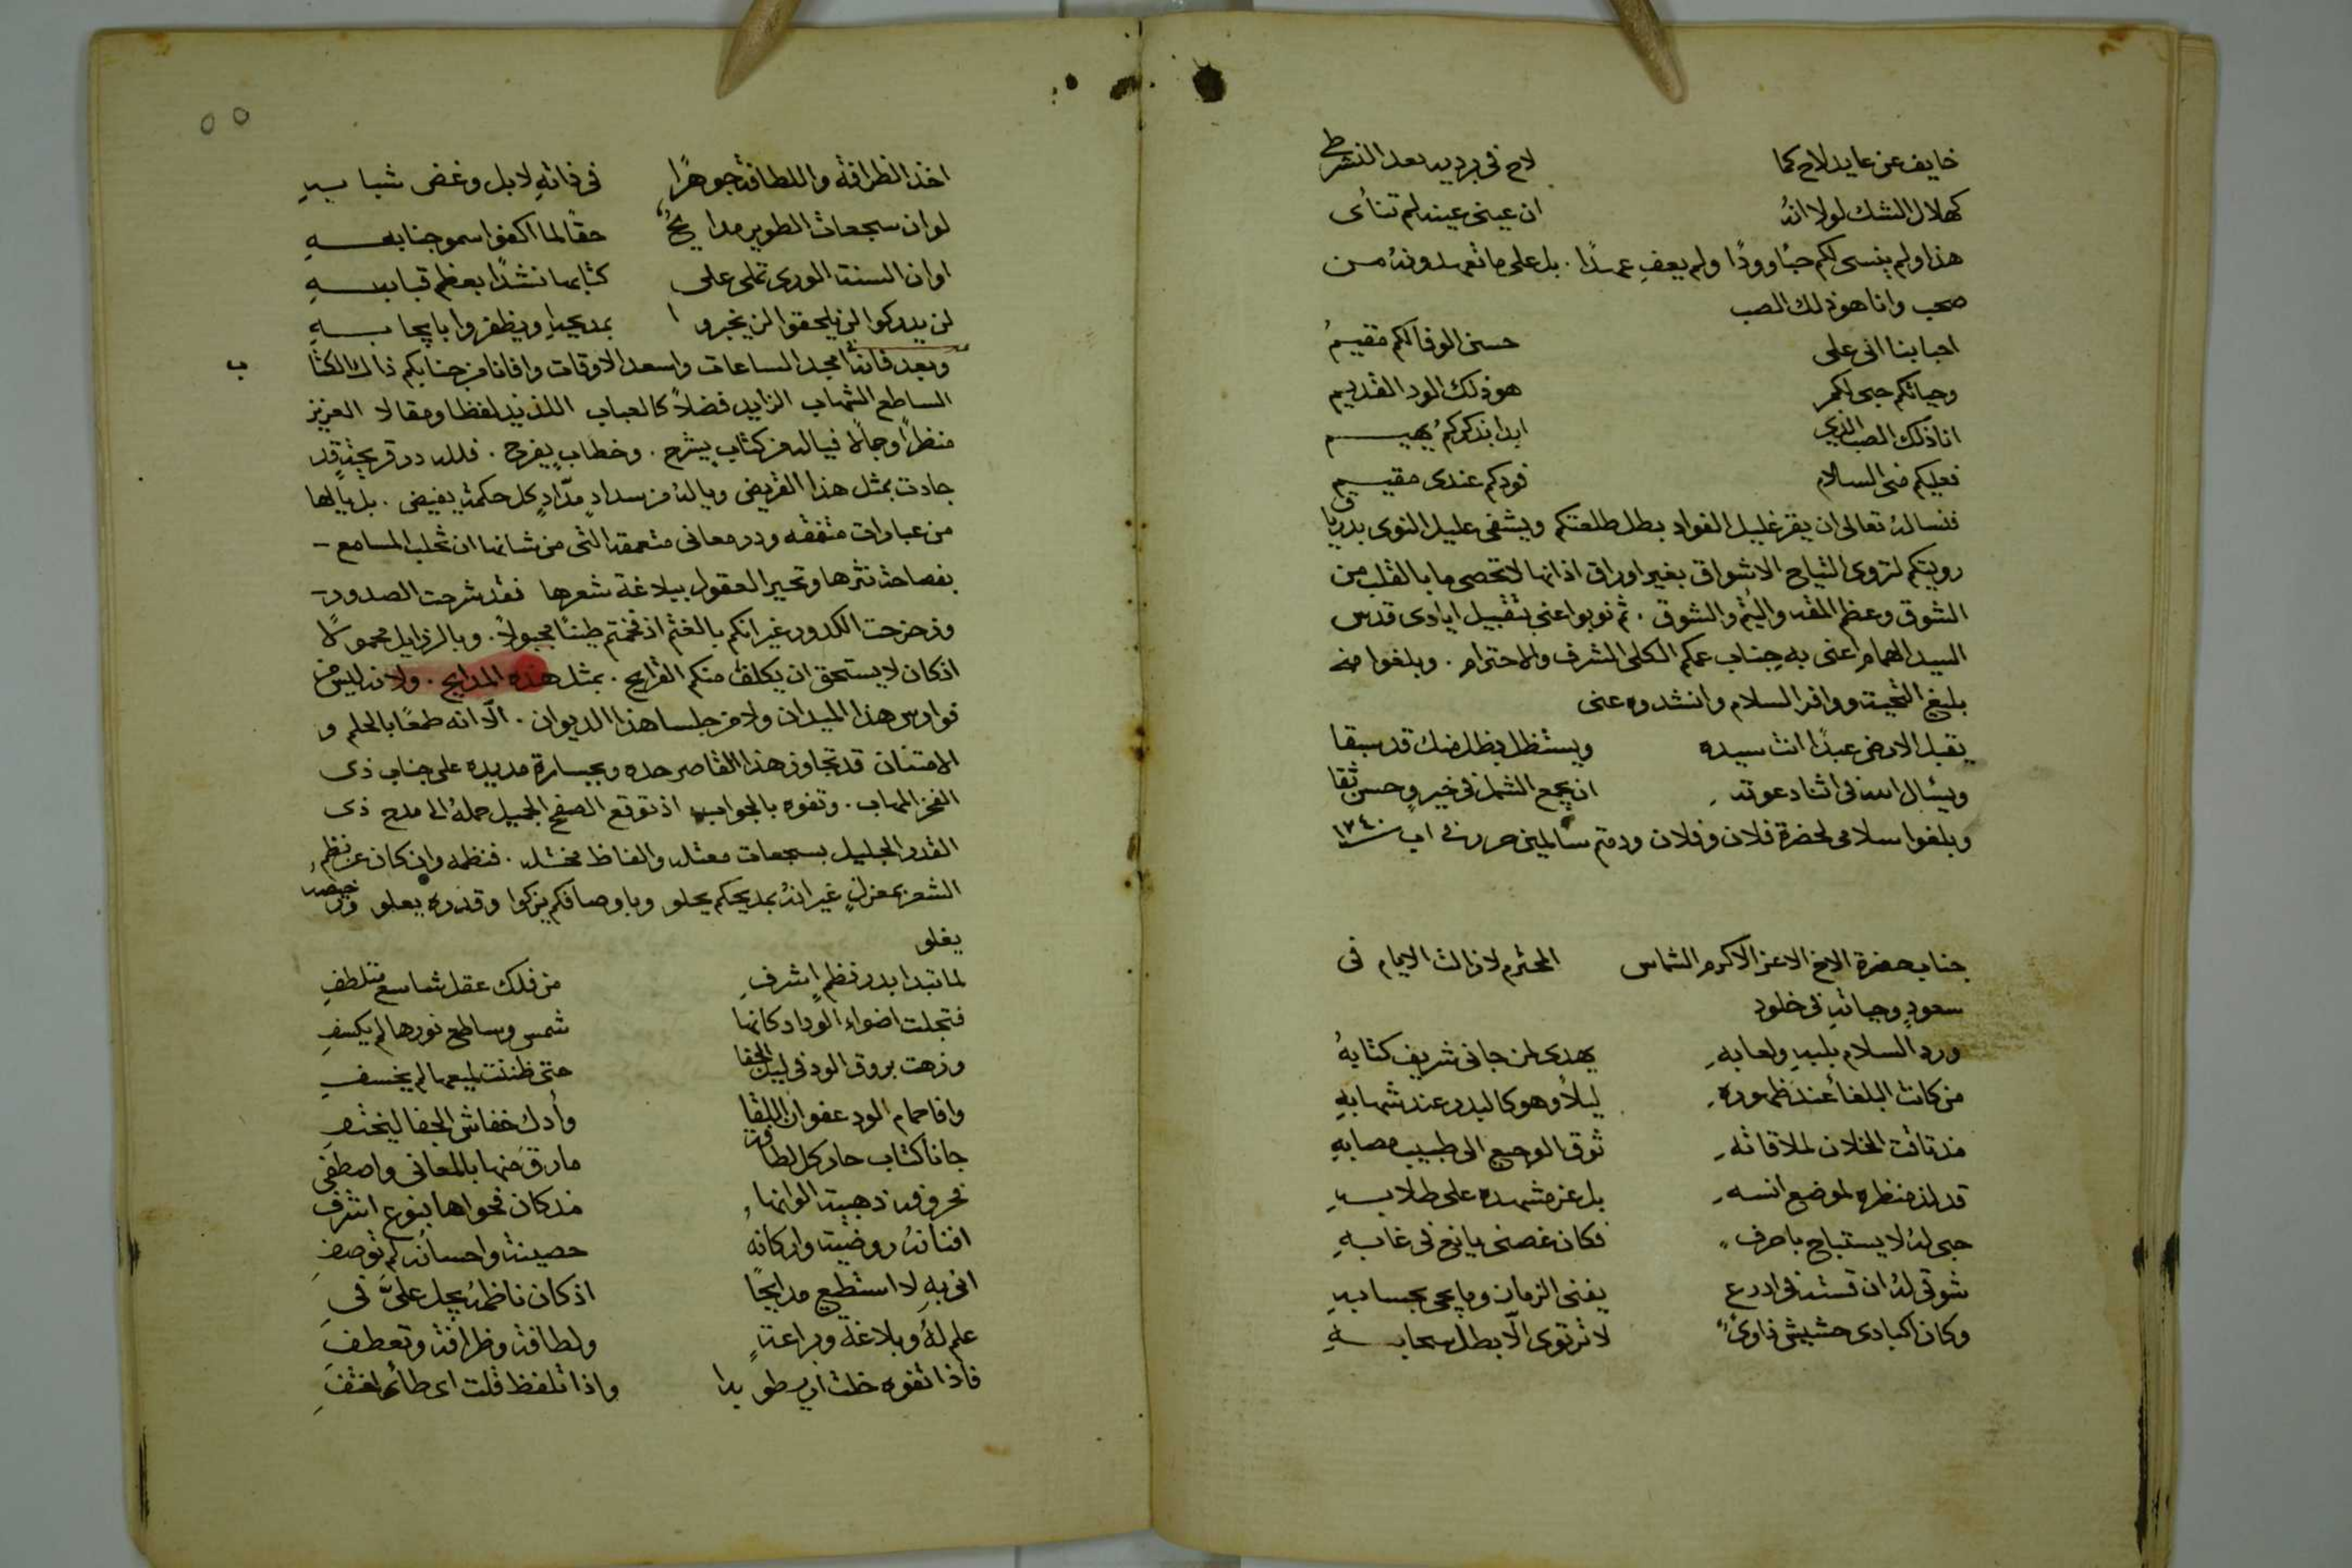 خايف عن عايد لاح كما لاح في برديه بعد النشر طي
كهلال الشك لولا انهُ ان عيني عينه لم تتأى
هذا ولم ينسى لكم حبًا وودًا ولم يعفِ عمدًا. بل على ما تعهدونهُ من
صحب وانا هو ذلك الصب
احبابنا اني على حسن الوفا لكم مقيمُ
وحياتكم حبى لكم هو ذلك الود القديم
انا ذلك الصب الذي ابدا بذكركمُ يهيم
فعليكم منى السلام فودكم عندى مقيم
فنسالهُ تعالى ان يقر غليل الفواد بطل طلعتكم ويشفى عليل النوى بدرياق
رويتكم لتروى التياح الاشواق بغير اوراق اذ انها لا تحصى ما بالقلب من
الشوق وعظم المقه واليُتم والشوق. ثم نوبوا عنى بتقبيل ايادى قدس
السيد الهمام اعنى به جناب عمكم الكلى الشرف والاحترام. وبلغوا منه
بليغ التحية ووافر السلام وانشدوه عنى
يقبل الارض عبدًا انت سيده ويستظل بظل منك قد سبقا
ويسُال الله فى اثنا دعوته ان يجمع الشمل في خيرٍ وحسن ثقا
وبلغوا سلامى لحضرة فلان وفلان ودمتم سالمين حرر في اب ١٧٤٠
جناب حضرة الاخ الاعز الاكرم الشماس المحترم لا زالت الايام فى
سعودٍ وحياتهِ فى خلود
ورد السلام بلبيهِ ولعابهِ يهدى لمن جانى شريف كتابهُ
من كانت البلغأ عند ظهوره ليلاً وهو كالبدر عند شهابهِ
مذ تاقت الخلان لملاقاته توق الوجيع الى طبيب مصابهِ
قد لذ منظره لموضع انسه بل عز مشهده على طلابهِ
حبى لهُ لا يستباح باحرف فكان غصنى يانع في غابهِ
شوقى لهُ ان تستذقى ادرع يفنى الزمان وما يحى بحسابهِ
وكان اكبادى حشيش ذاوىً لا ترتوى الّا بطل سحابهِ
٥٥
اخذ الظرافة واللطافة جوهرًا في ذاتهِ لا بل وغض شبابهِ
لو ان سجعات الطوير مدايحُ حقًا لما اكفوا سمو جنابهِ
او ان السنة الورى تملى على كتابها نشدًا بعظم قبابهِ
لن يدركوا لن يلحقوا لن يخبروا بمديحهِ او يظفروا بايجابهِ
وبعد فانهُ امجد الساعات واسعد الاوقات وافانا من جنابكم ذاك الكتاب
الساطع الشهاب الزايد فضلاً كالعباب اللذيذ لفظا ومقالا العزيز
منظرًا وجمالا فياله من كتاب يشرح. وخطابٍ يفرح. فلله در قريحةٍ قد
جادت بمثل هذا القريض وياله من سدادٍ مدّادٍ كل حكمةٍ يفيض. بل يالها
من عبارات متفقه ودرر معانى متعمقه التى من شانها ان تجلب المسامع
بفصاحة نثرها وتحير العقول ببلاغة شعرها فقد شرحت الصدور
وزحزحت الكدور غير انكم بالغتم اذ فخمتم طينًا مجبولاً. وبالرذايل محمولاً
اذ كان لا يستحق ان يكلف منكم القرايح. بمثل هذه المدايح. ولانه ليس من
فوارس هذا الميدان ولا من جلسا هذا الديوان. الّا انه طمعًا بالحلم و
الامتنان قد تجاوز هذا القاصر حده وبجسارة مديده على جناب ذى
الفخر المهاب. وتفوه بالجواب اذ توقع الصفح الجميل حملهُ الى مدح ذى
القدر الجليل بسجعات معتله والفاظ مختله. فنظمه وان كان عن نظم
الشعر بمعزلٍ غير انهُ بمديحكم يحلو وباوصافكم يزكوا وقدره يعلو ورخيصه
يغلو
لما تبدا بدر نظمٍ اشرفِ من فلك عقل شاسع متلطفِ
فتجلت اضواء الوداد كانها شمس وساطع نورها لم يكسفِ
وزهت بروق الود فى ليل الجفا حتى ظننت لميعها لم يخسفِ
وافا حمام الود عفوان اللقا وأدك خفاش الجفا ليختفِ
جانا كتاب حاز كل لطافة ما رقَ منها بالمعانى واصطفى
فحروفه ذهبية الوانها مذ كان فحواها بنوع اشرف
افنانهُ روضية واركانهُ حصينة واحسانهُ لم توصفِ
انى بهِ لا استطيع مدايحًا اذ كان ناظمهُ يجل علىَّ فى
علم لهُ وبلاغةٌ وبراعةٍ ولطافة وظرافة وتعطف
فاذا تفوه خلت ارسطو بدا واذا تلفظ قلت اى طائى لغتفِ